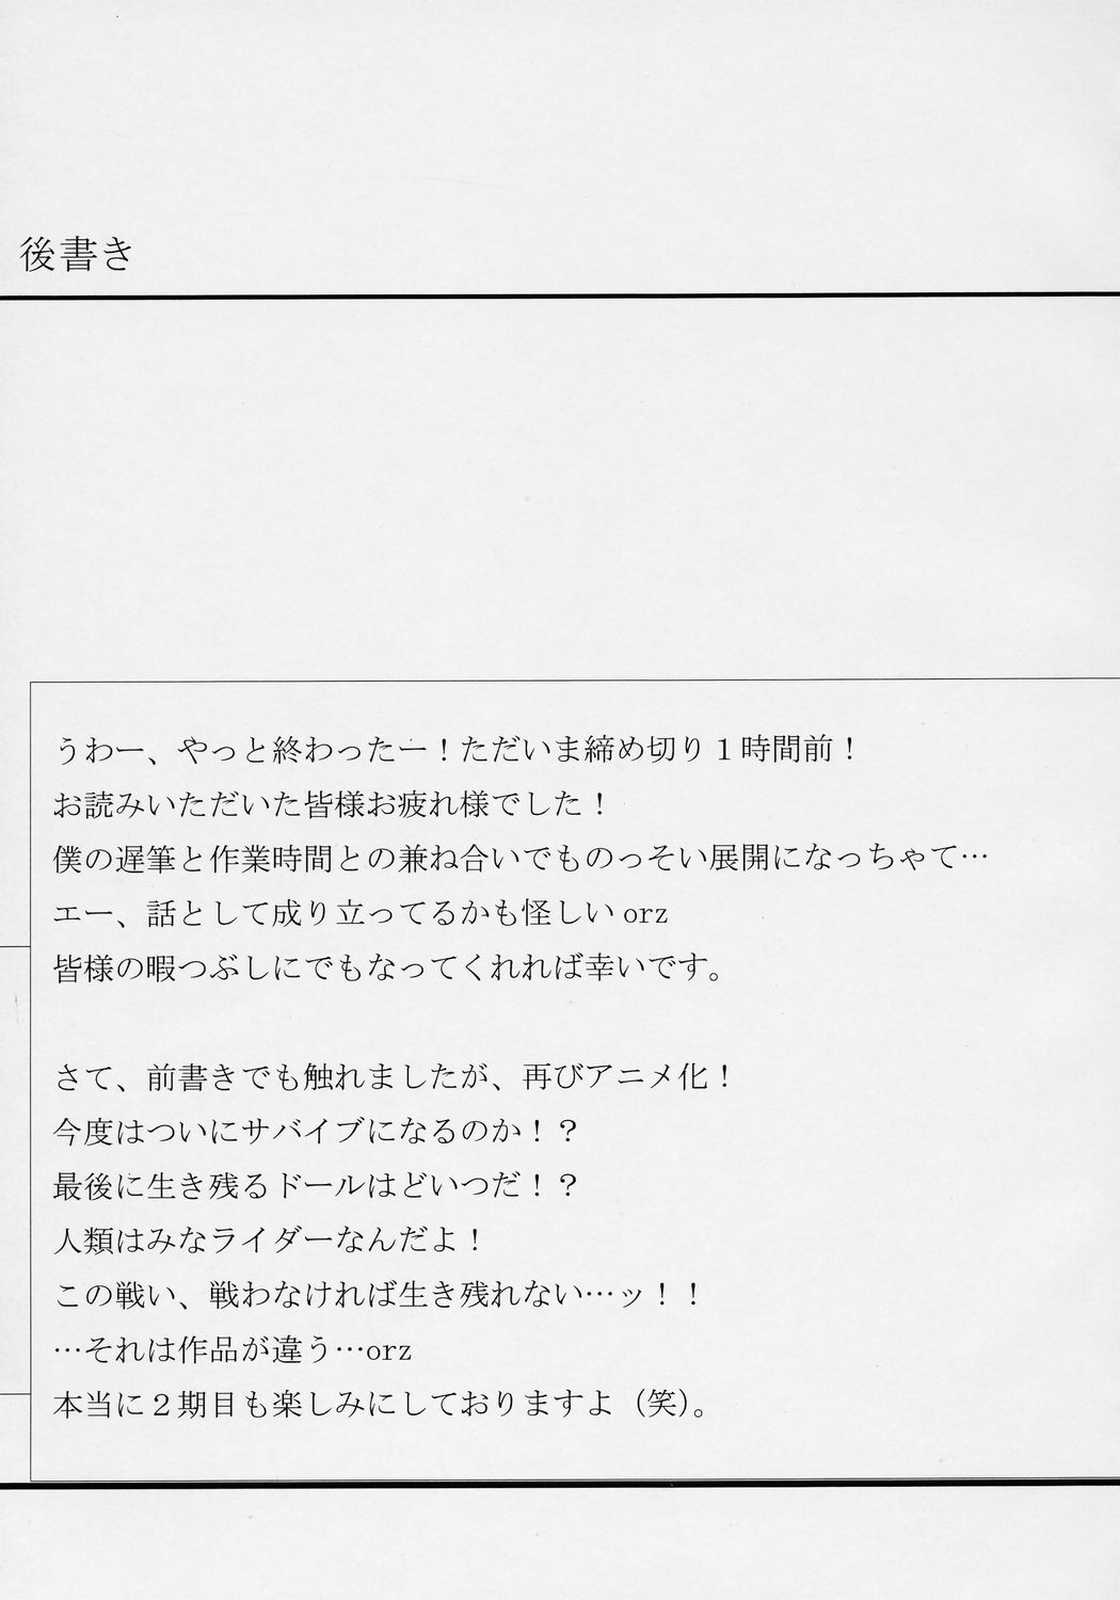 後書き
うわー、やっと終わったー！ただいま締め切り１時間前！
お読みいただいた皆様お疲れ様でした！
僕の遅筆と作業時間との兼ね合いでものっそい展開になっちゃて…
エー、話として成り立ってるかも怪しい orz
皆様の暇つぶしにでもなってくれれば幸いです。
さて、前書きでも触れましたが、再びアニメ化！
今度はついにサバイブになるのか！？
最後に生き残るドールはどいつだ！？
人類はみなライダーなんだよ！
この戦い、戦わなければ生き残れない…ッ！！
…それは作品が違う…orz
本当に２期目も楽しみにしておりますよ（笑）。